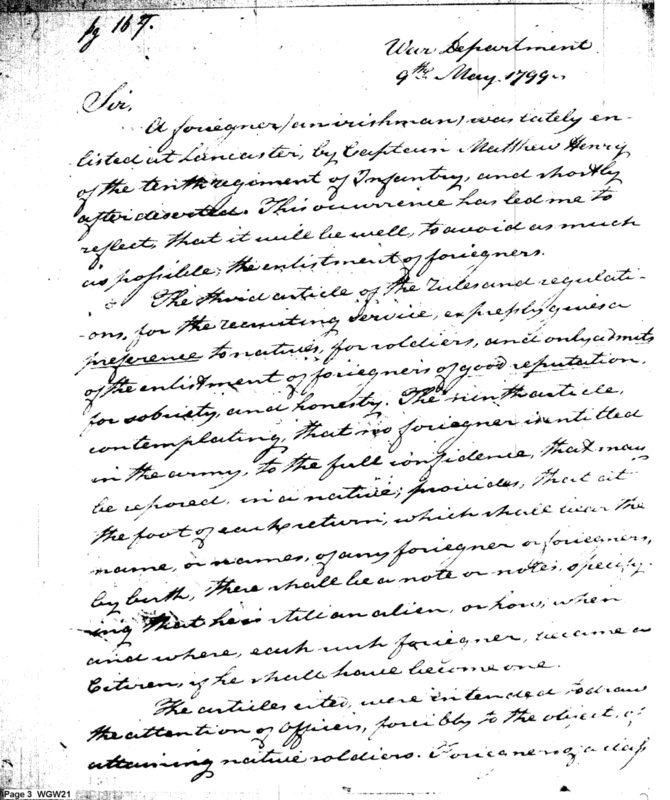 pg 167.
War Department
9th May 1799.
Sir,
A foriegner (an irishman) was lately en-
listed at Lancaster, by Captain Matthew Henry
of the tenth regiment of Infantry, and shortly
after deserted. This occurrence has led me to
reflect, that it will be well, to avoid as much
as possible, the enlistment of foriegners.
The third article of the rules and regulati-
-ons, for the recruiting service, expressly gives a
preference to natives, for soldiers, and only admits
of the enlistment of foriegners of good reputation,
for sobriety, and honesty. The ninth article,
contemplating, that no foriegner is entitled
in the army, to the full confidence, that may
be reposed, in a native; provides, that at
the foot of each return, which shall bear the
name, or names, of any foriegner or foriegners,
by birth, there shall be a note or notes, specify-
ing that he is still an alien, or how, when
and where, each such foriegner, became a
Citizen, if he shall have become one.
The articles cited, were intended to draw
the attention of Officers, forcibly to the object, of
attaining native soldiers. Foriegners of a class
Page 3 WGW21